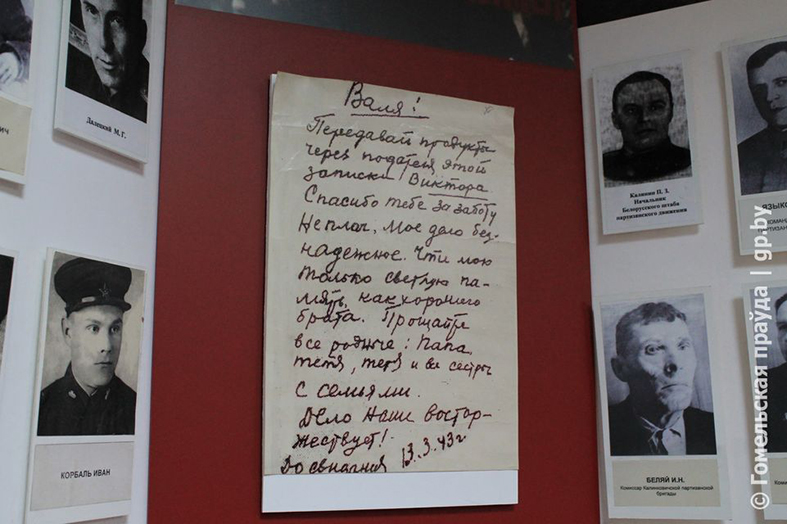 Валя!
Передавай продукты
через подателя этой
записки Виктора
Спасибо тебе за заботу
Не плач, Мое дело без-
надежное. Чти мою
только светлую па-
мять, как хорошего
брата. Прощайте
все родные: Папа,
тетя, и все сестры
с семьями.
Дело наше востор-
жествует!
До свиданья 13.3.43г
Далецкий М.Г.
ич
КОРБАЛЬ ИВАН
Калинин П. З.
Начальник
Белорусского штаба
партизанского движения
ЯЗЫКО
БЕЛЯЙ И.Н.
Комиссар Калинковичской партизанской
бригады
© Гомельская праўда | gp.by